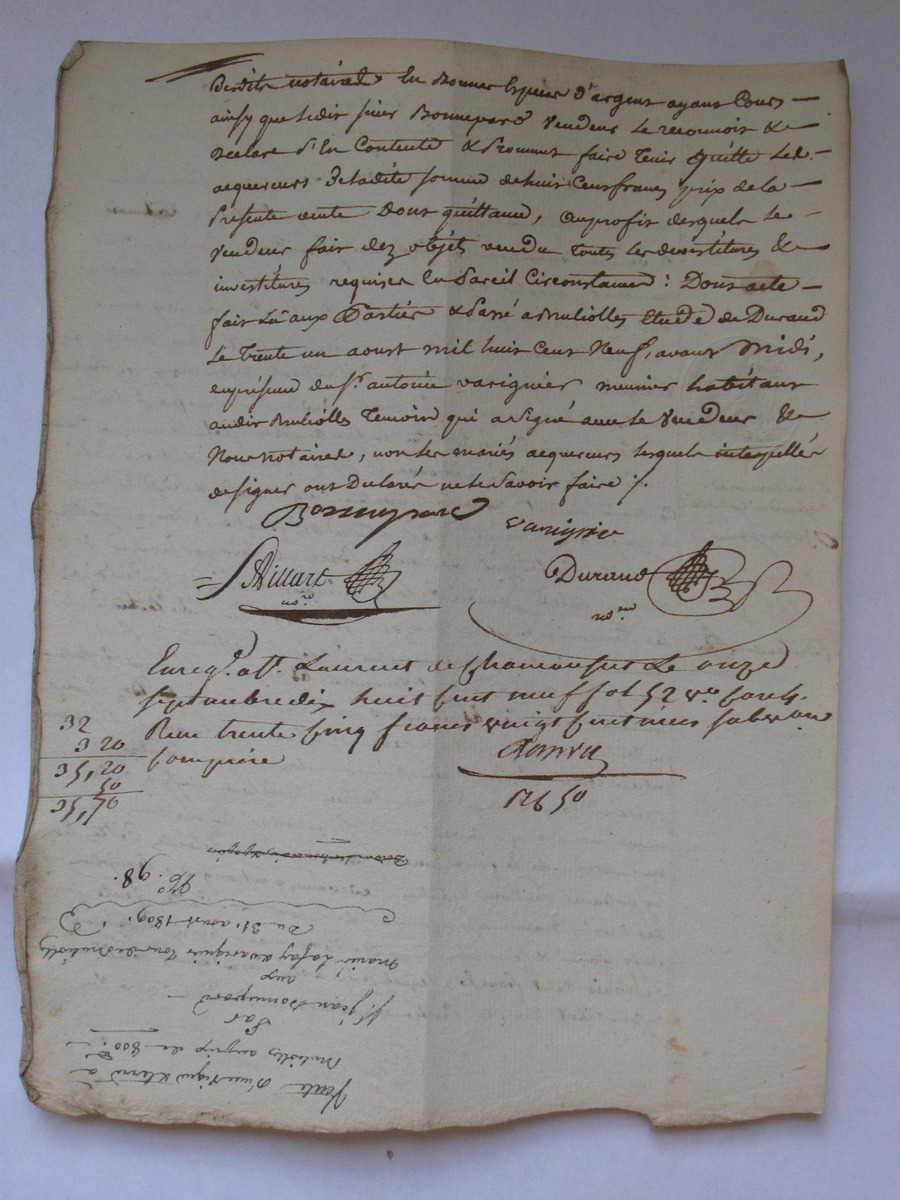 Desdits notaires En Bonnes Espèces D'argent ayant Cours
ainsy que ledit sieur Bonnepard Vendeur le reconnoit &
Declare S'En Contente & Promet faire Tenir Quitte Led.
acquereurs De ladite somme de huit Cent francs prix de la
Presente vente Dont quittance, au profit desquels le
Vendeur fait dez objets vendu toutes les devestitures &
investitures requises En Pareil Circonstances : Dont acte
fait Lû aux Parties & Passé a Etude de Durand
Le Trente un aoust mil huit Cent Neuf, avant Midi,
en présence du Sr. antoine varignier meunier habitant
audit Temoin qui a signé avec le Vendeur &
Nous notaires, non les mariés acquereurs lesquels interpellés
de signer ont Declarés ne le Savoir faire /.
Bonnepard
varignier
Aillart
Durand
no.re
no.re
Enreg. a St. Laurent de Chamousset Le onze
Septembre dix huit cent neuf fol 52 vo
Reçu trente cinq francs vingt centimes
32
3 20
35,20
50
35,70
compris
126 50
No. 98.
Du 31. aout 1809.
aux
Sr. jean Bonnepard
Par
au prix de 800 f.
Vente D'une Vigne & terre à